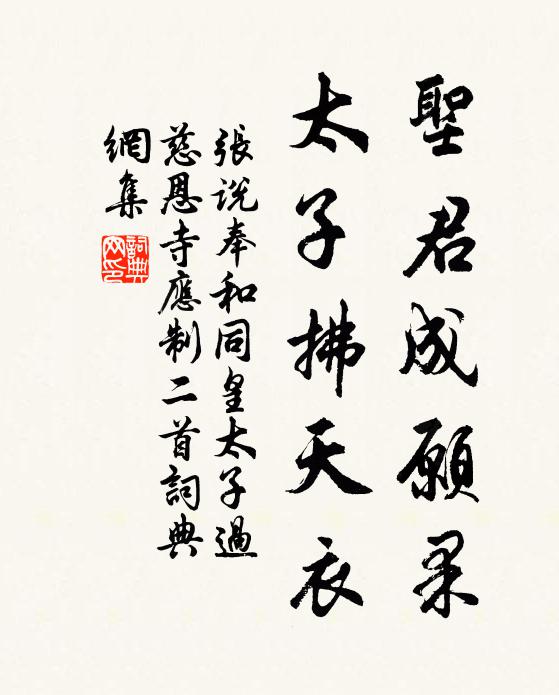 聖君成願果
太子拂天衣
張說奉和同皇太子過
慈恩寺應制二首詞典
網集
詞典
网印